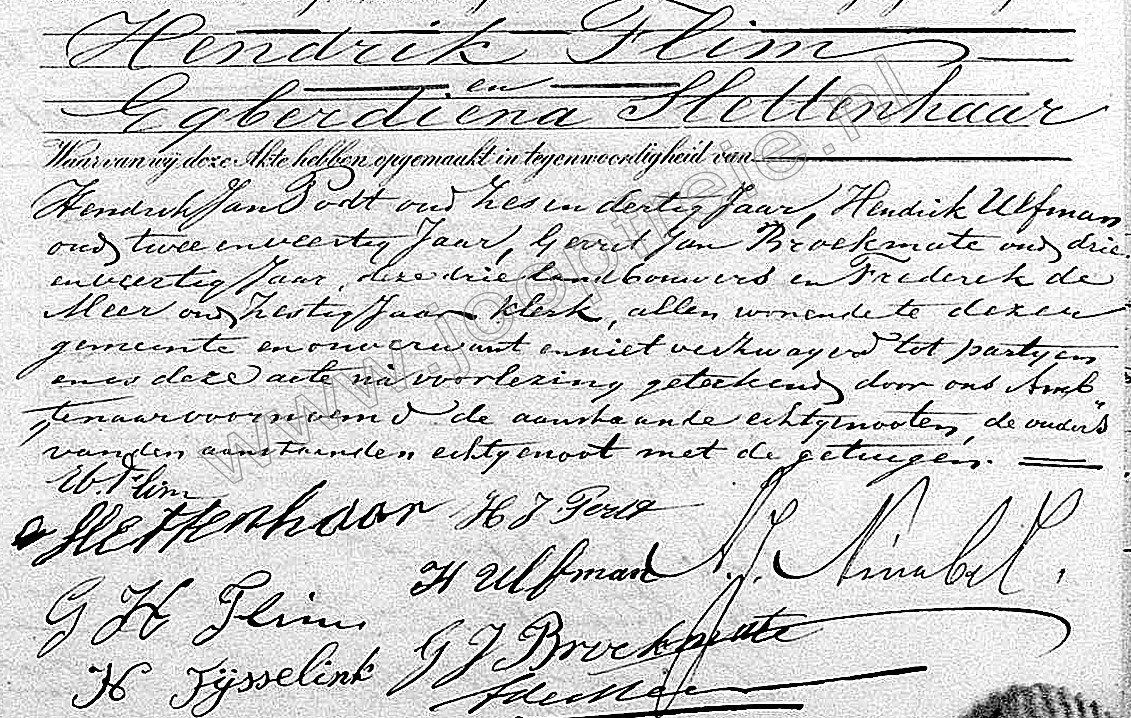 Hendrik Flim
en
Egberdiena Slettenhaar
Waarvan wij deze Akte hebben opgemaakt in tegenwoordigheid van
Hendrik Jan Podt oud zes en dertig Jaar, Hendrik Ulfman
oud twee en veertig Jaar, Gerrit Jan Broekmate oud drie
en veertig Jaar, deze drie landbouwers en Frederik de
Meer oud zestig Jaar klerk, allen wonende te dezer
gemeente en onverwant en niet verzwagerd tot partyen
en is deze acte na voorlezing geteekend door ons Amb"
"tenaar voornoemd de aanstaande echtgenooten, de ouders
van den aanstaanden echtgenoot met de getuigen.
H. Flim
Slettenhaar H J Podt
H Ulfman
G H Flim
G J Broekmate
H Tijsselink
F de Meer
www.joopileie.nl